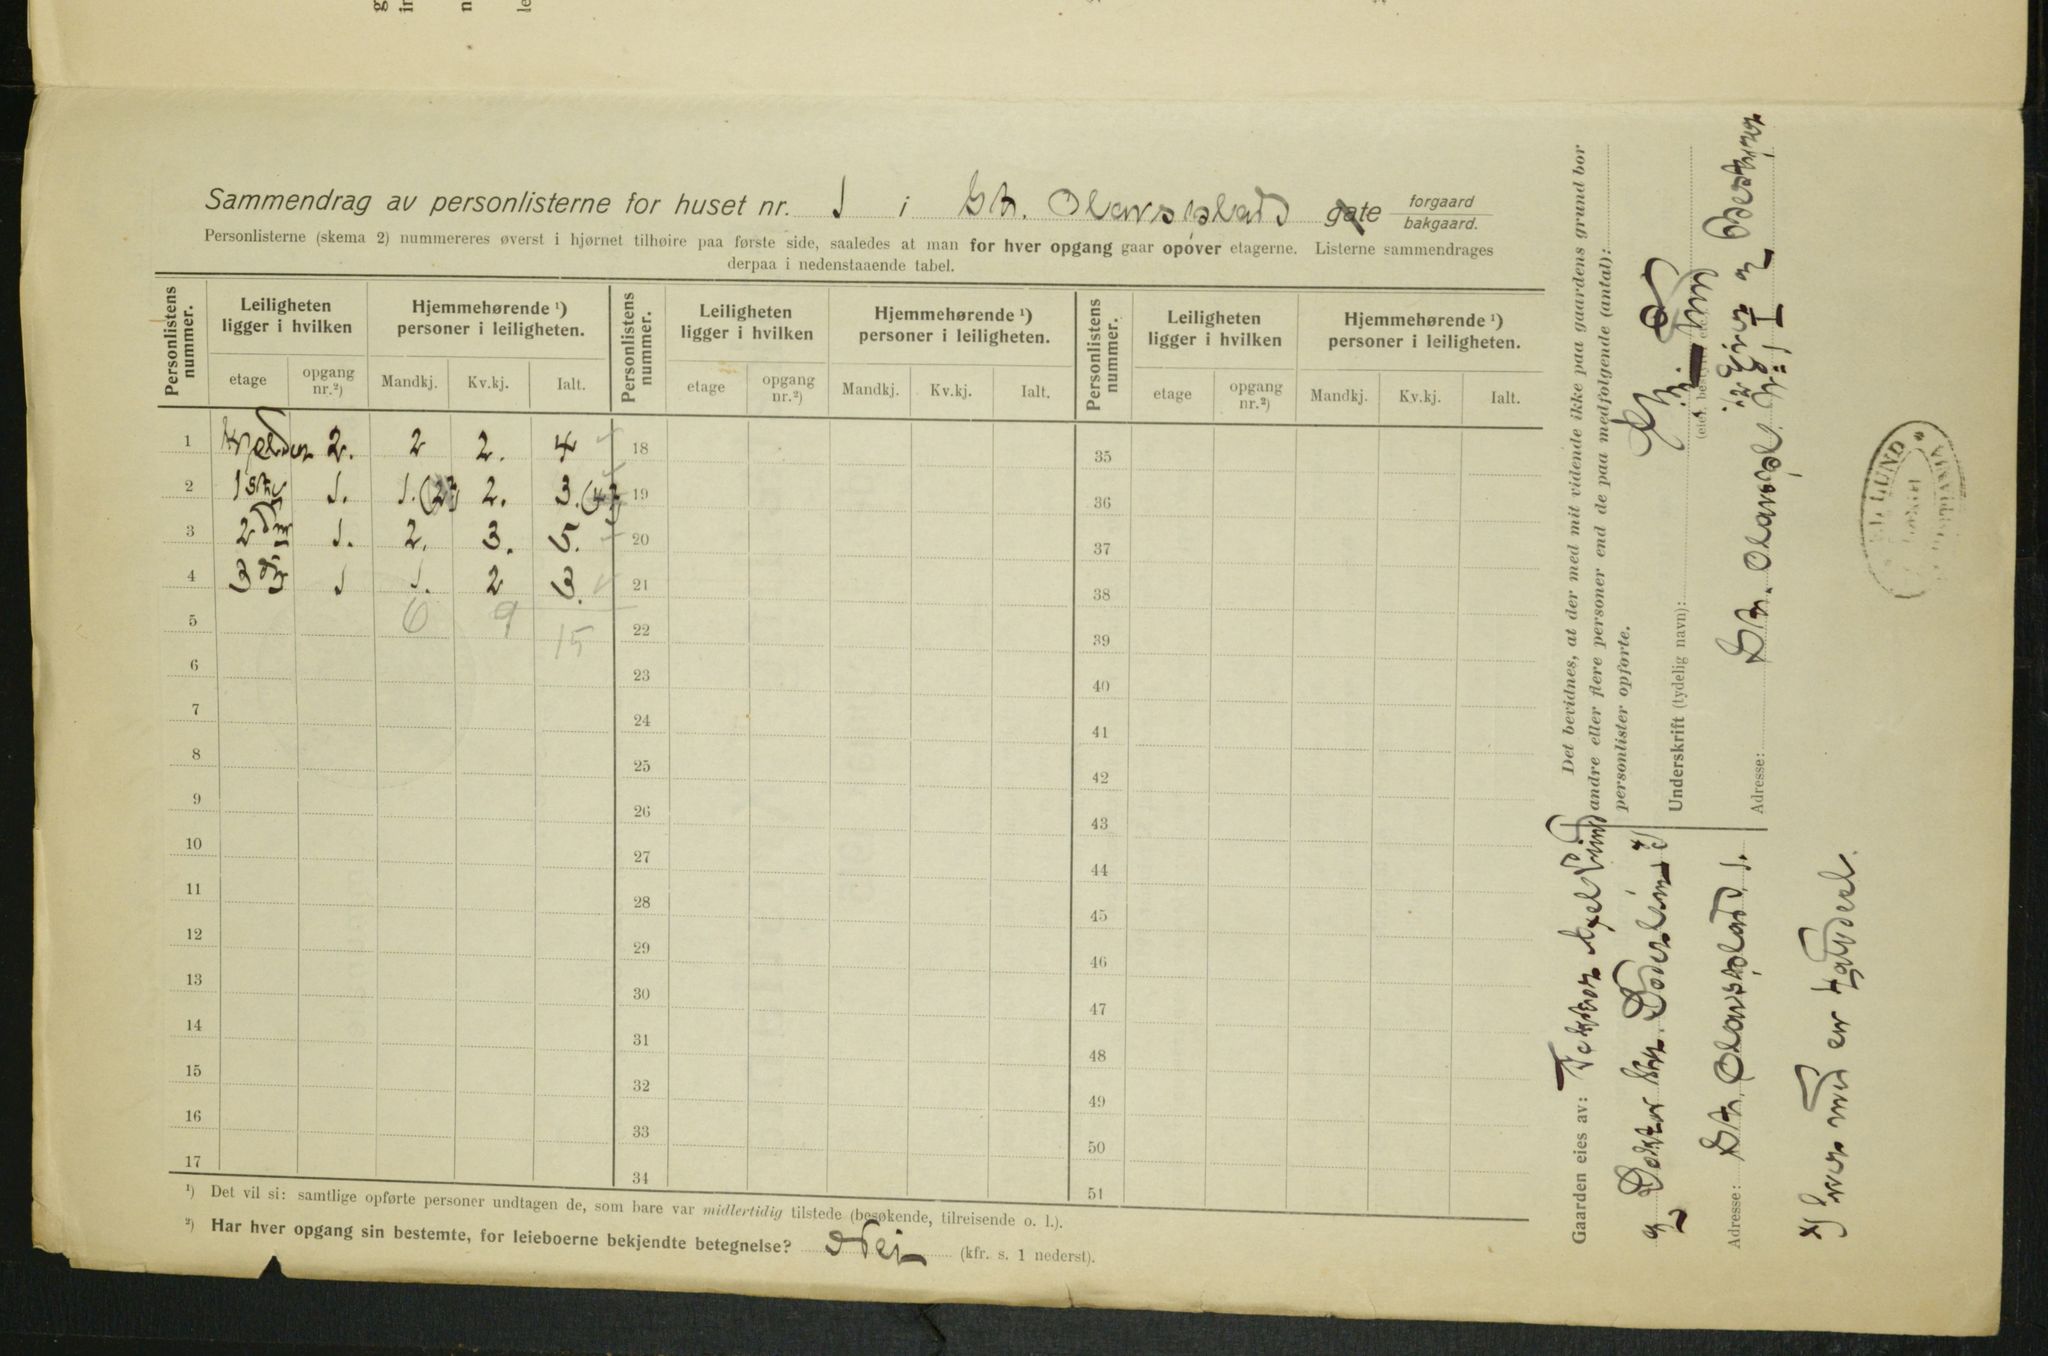 Sammendrag av personlisterne for huset nr. 1 i St. Olavsplads gate forgaard bakgaard.
Personlisterne (skema 2) nummereres øverst i hjørnet tilhøire paa første side, saaledes at man for hver opgang gaar opover etagerne. Listerne sammendrages
derpaa i nedenstaaende tabel.
Personlistens nummer. Leiligheten ligger i hvilken Hjemmehørende ¹) personer i leiligheten. Personlistens nummer. Leiligheten ligger i hvilken Hjemmehørende ¹) personer i leiligheten. Personlistens nummer. Leiligheten ligger i hvilken Hjemmehørende ¹) personer i leiligheten.
etage opgang nr.²) Mandkj. Kv.kj. Ialt. etage opgang nr.²) Mandkj. Kv.kj. Ialt. etage opgang nr.²) Mandkj. Kv.kj. Ialt.
1 Kjelder 2. 2 2. 4 18 35
2 1ste 1. 1. 2. 3. 19 36
3 2den 1. 2. 3. 5. 20 37
4 3die 1 1. 2 3. 21 38
5 6 9 15 22 39
6 23 40
7 24 41
8 25 42
9 26 43
10 27 44
11 28 45
12 29 46
13 30 47
14 31 48
15 32 49
16 33 50
17 34 51
¹) Det vil si: samtlige opførte personer undtagen de, som bare var midlertidig tilstede (besøkende, tilreisende o. l.).
²) Har hver opgang sin bestemte, for leieboerne bekjendte betegnelse? Nei (kfr. s. 1 nederst).
Gaarden eies av: Doktor Axel Lund
og Doktor Chr. Döderlein *)
Adresse: St. Olavsplads 1.
*) hver med en halvdel.
Det bevidnes, at der med mit vidende ikke paa gaardens grund bor
andre eller flere personer end de paa medfølgende (antal):
personlister opførte.
Underskrift (tydelig navn): Lund
Adresse: St. Olavspl. No 1
LUND